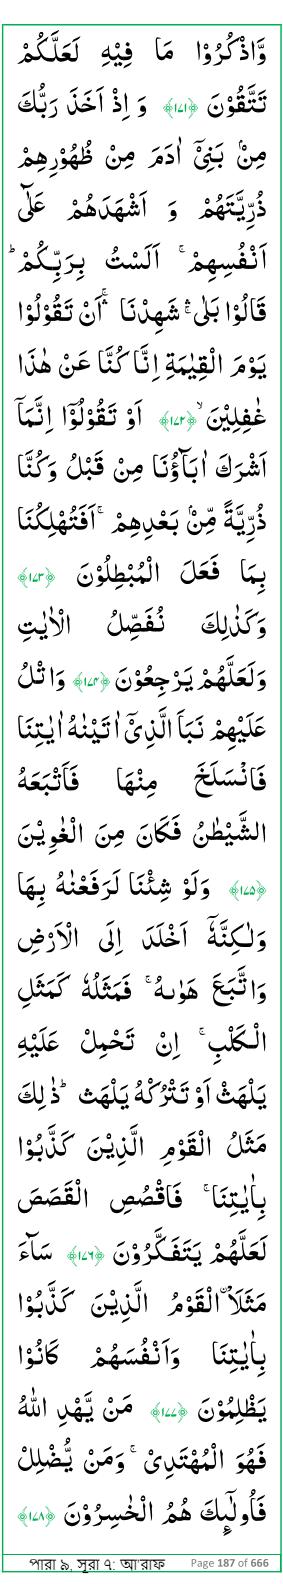 وَّاذْكُرُوْا مَا فِيْهِ لَعَلَّكُمْ
تَتَّقُوْنَ ﴿۱۷۱﴾ وَ اِذْ اَخَذَ رَبُّكَ
مِنْۢ بَنِيْۤ اٰدَمَ مِنْ ظُهُوْرِهِمْ
ذُرِّيَّتَهُمْ وَ اَشْهَدَهُمْ عَلٰۤى
اَنْفُسِهِمْ ۚ اَلَسْتُ بِرَبِّكُمْ ؕ
قَالُوْا بَلٰى ۛۚ شَهِدْنَا ۛۚ اَنْ تَقُوْلُوْا
يَوْمَ الْقِيٰمَةِ اِنَّا كُنَّا عَنْ هٰذَا
غٰفِلِيْنَ ۙ﴿۱۷۲﴾ اَوْ تَقُوْلُوْۤا اِنَّمَاۤ
اَشْرَكَ اٰبَآؤُنَا مِنْ قَبْلُ وَكُنَّا
ذُرِّيَّةً مِّنْۢ بَعْدِهِمْ ۚ اَفَتُهْلِكُنَا
بِمَا فَعَلَ الْمُبْطِلُوْنَ ﴿۱۷۳﴾
وَكَذٰلِكَ نُفَصِّلُ الْاٰيٰتِ
وَلَعَلَّهُمْ يَرْجِعُوْنَ ﴿۱۷۴﴾ وَاتْلُ
عَلَيْهِمْ نَبَاَ الَّذِيْۤ اٰتَيْنٰهُ اٰيٰتِنَا
فَانْسَلَخَ مِنْهَا فَاَتْبَعَهُ
الشَّيْطٰنُ فَكَانَ مِنَ الْغٰوِيْنَ
﴿۱۷۵﴾ وَلَوْ شِئْنَا لَرَفَعْنٰهُ بِهَا
وَلٰكِنَّهٗۤ اَخْلَدَ اِلَى الْاَرْضِ
وَاتَّبَعَ هَوٰىهُ ۚ فَمَثَلُهٗ كَمَثَلِ
الْكَلْبِ ۚ اِنْ تَحْمِلْ عَلَيْهِ
يَلْهَثْ اَوْ تَتْرُكْهُ يَلْهَثْ ؕ ذٰلِكَ
مَثَلُ الْقَوْمِ الَّذِيْنَ كَذَّبُوْا
بِاٰيٰتِنَا ۚ فَاقْصُصِ الْقَصَصَ
لَعَلَّهُمْ يَتَفَكَّرُوْنَ ﴿۱۷۶﴾ سَآءَ
مَثَلَاۨ الْقَوْمُ الَّذِيْنَ كَذَّبُوْا
بِاٰيٰتِنَا وَاَنْفُسَهُمْ كَانُوْا
يَظْلِمُوْنَ ﴿۱۷۷﴾ مَنْ يَّهْدِ اللّٰهُ
فَهُوَ الْمُهْتَدِيْ ۚ وَمَنْ يُّضْلِلْ
فَاُولٰٓئِكَ هُمُ الْخٰسِرُوْنَ ﴿۱۷۸﴾
পারা ৯, সূরা ৭: আ'রাফ Page 187 of 666